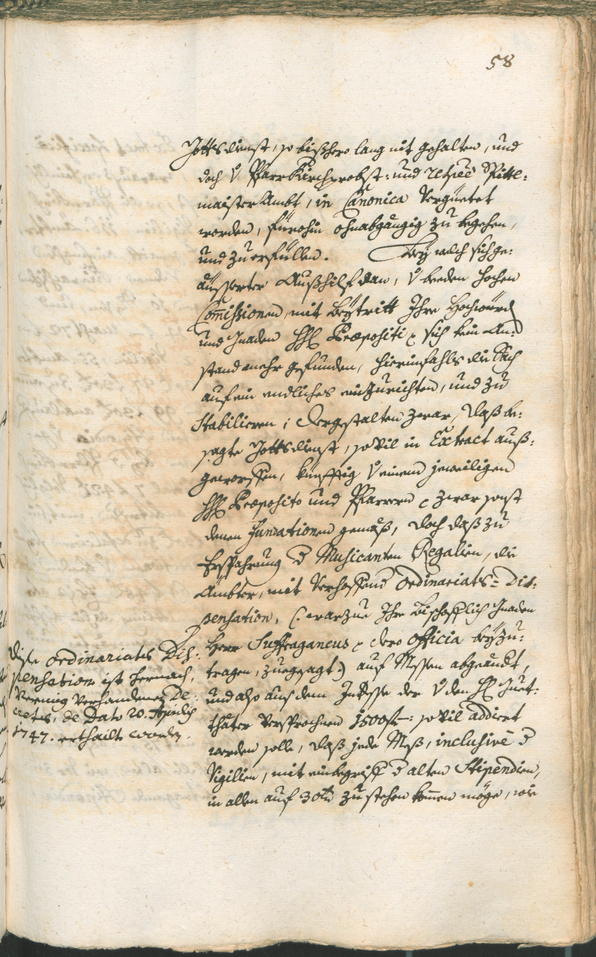 58
Gottsdienst, so bißhero lang nit gehalten, und
doch v Pfarr Kirchprobst: und
maister Ambt, in Canonica Vergüetet
worden, fürohin ohnabgängig zu begehen,
und zu erfüllen. Bey welch sich ge:
eüsserter Außhilf dan, v beeden hochen
Commissionen mit Beytritt Ihro Hochwürd
und Gnaden HH. Praepositi sich kein An:
stand mehr gefunden, hierinfahls die Sach
auf ein endliches einzurichten, und zu
stabilieren; dergestalten zwar, daß be:
sagte Gottsdienst, so vil in Extract auß:
geworffen, künfftig v einem jeweiligen
HH. Praeposito und Pfarrern zwar sonst
denen Fundationen gemäß, doch daß zu
Ersparung d Musicanten Regalien, die
Ämbter, mit Verhoffend Ordinariats= Dis:
pensation, (: warzue Ihro Bischöfflich Gnaden
Herr Suffraganeus dero officia beyzu:
tragen, zuegesagt :) auf Messen abgeändert,
und also auß dem Interesse der v den H. Guet:
thäter Versprochnen 1500 f so vil addiret
werden solle, daß jede Meß, inclusivè d
Vigilien, mit einbegriff d alten Stipendien,
in allen auf 30 zu stehen kommen möge, wie
Dise Ordinariats Dis:
pensation ist hernach,
Vermög Verhandenen De:
cretis, de Dato 20. Aprilis
1747. erthailt worden.